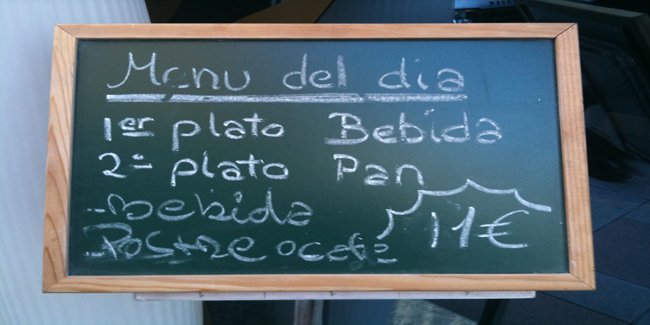 Menu del dia
1er plato Bebida
2º plato Pan
- Bebida
- Postre o cafe
11€